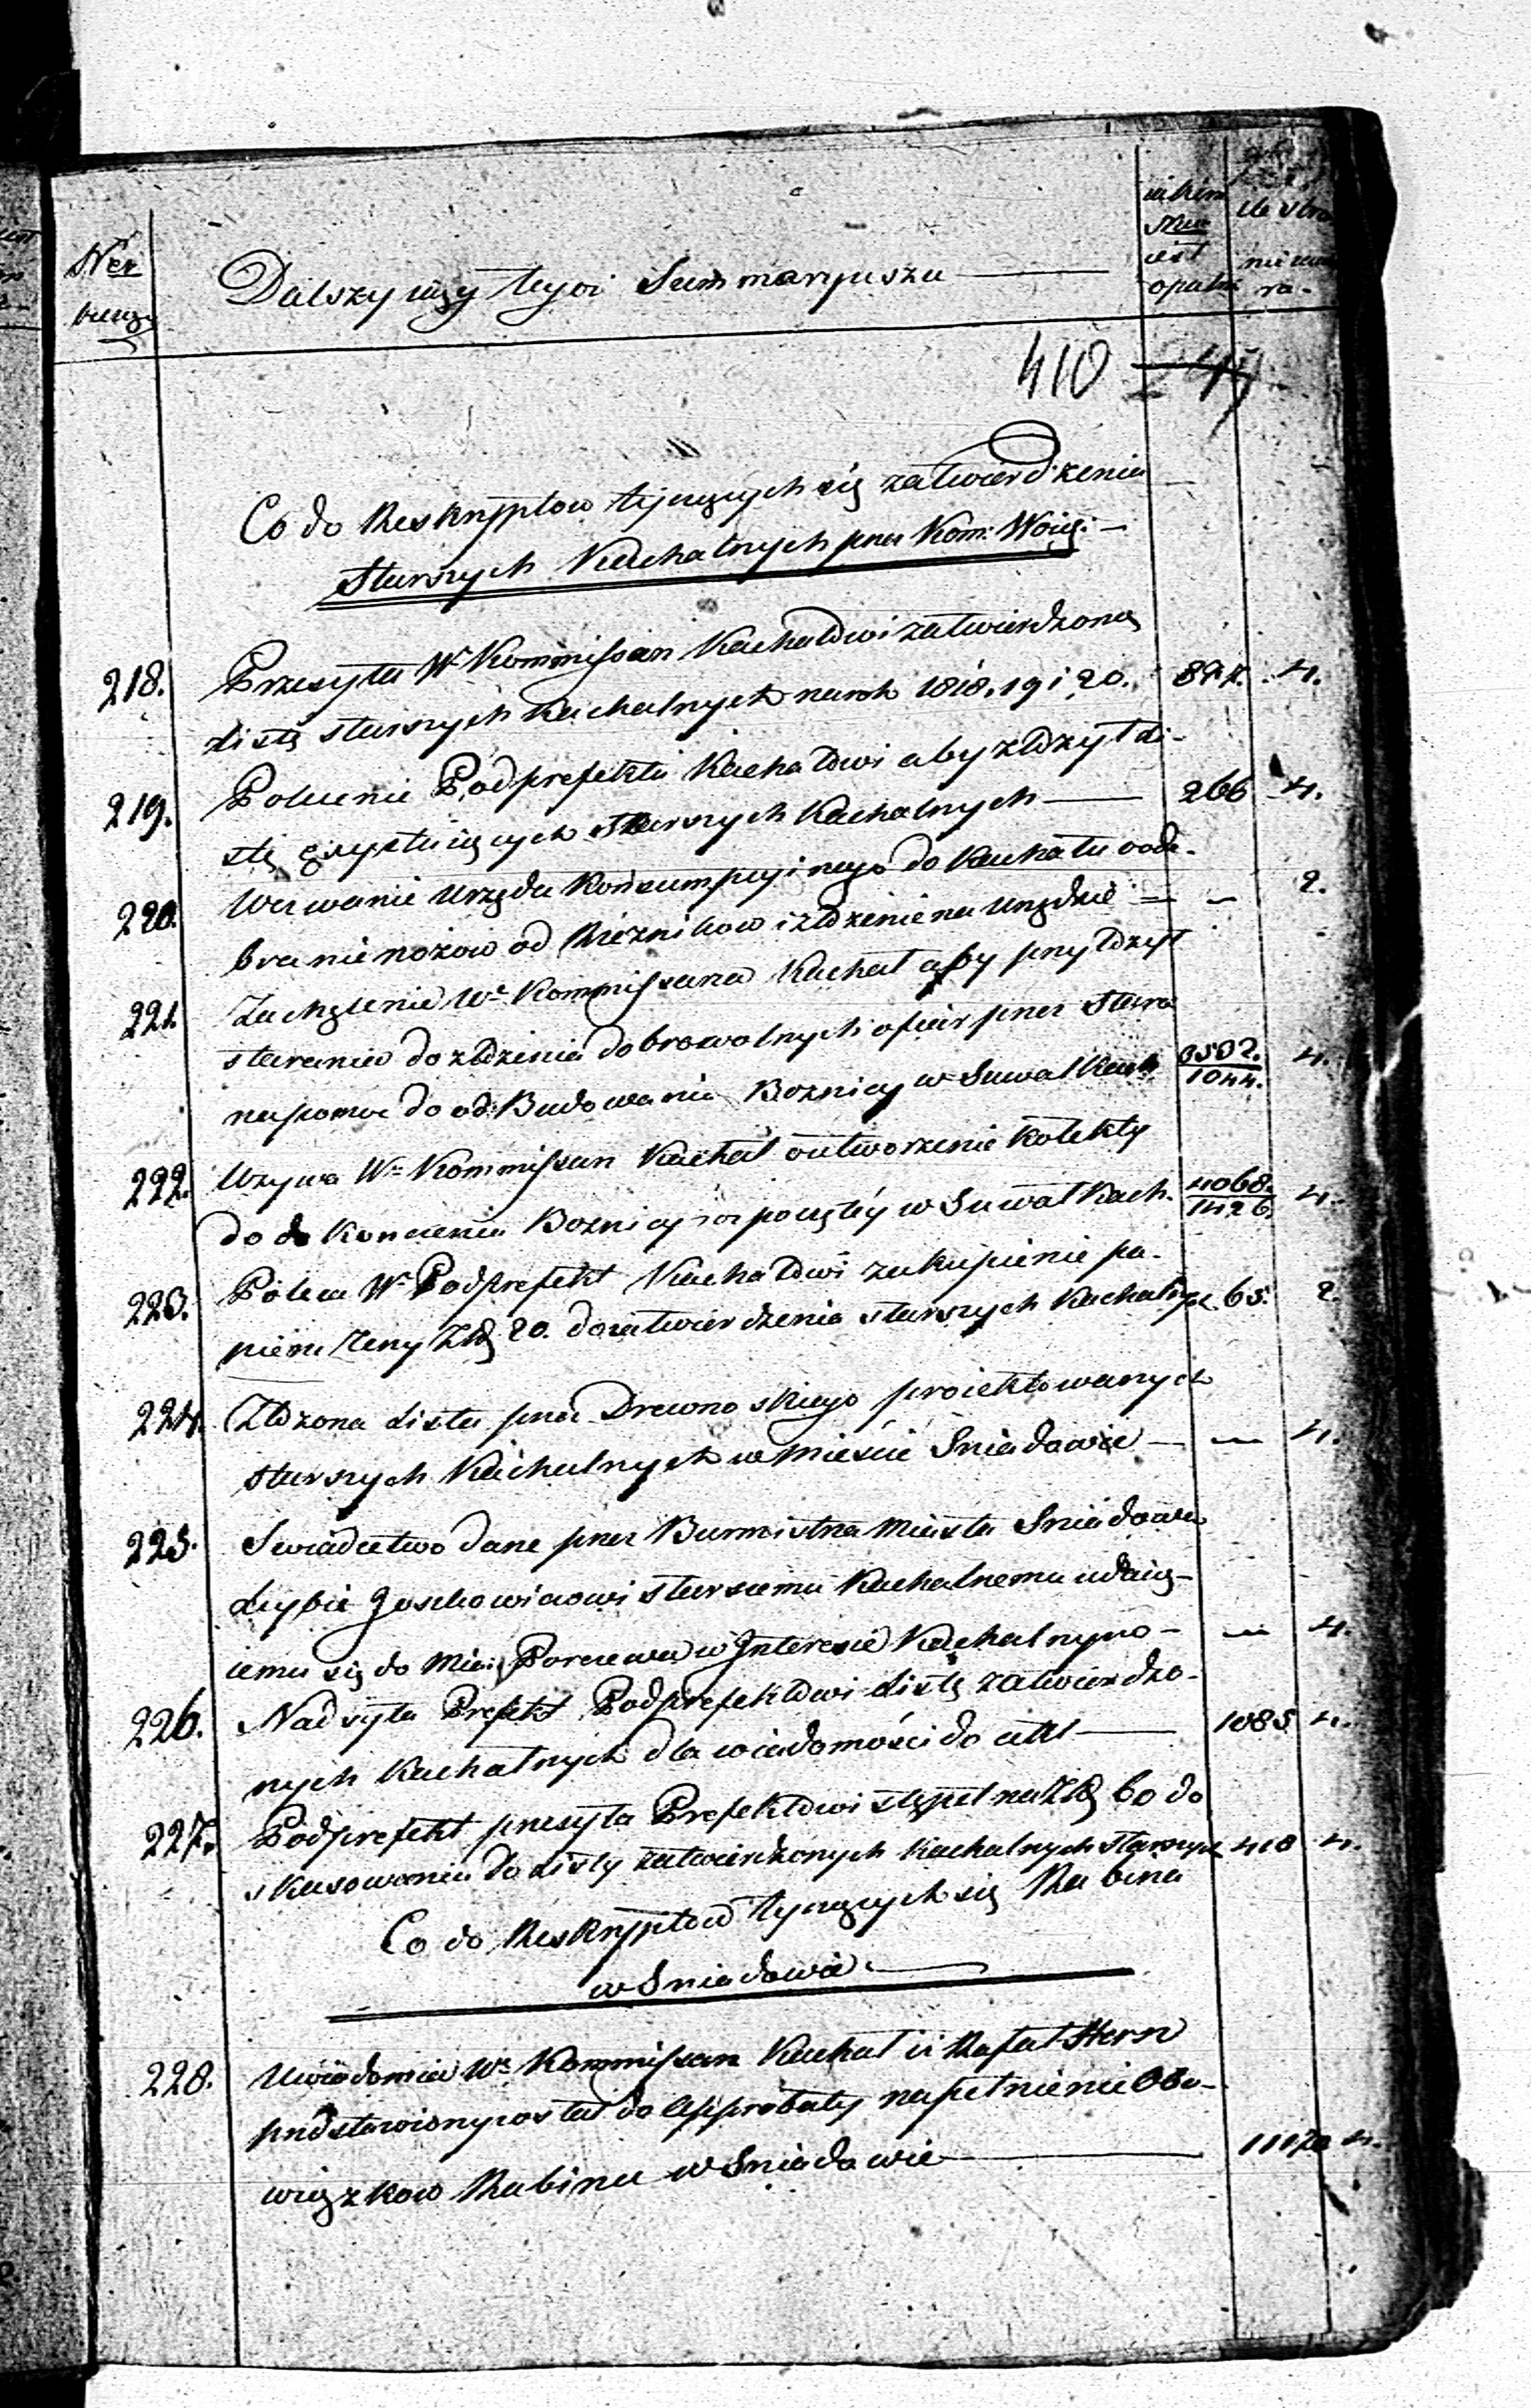 Ner
bieżący
Dalszy ciąg tegoż Summaryuszu
w którem
Nrze
iest
opatrz
ile stro
nic zawie
ra.
410 247
Co do Reskryptow tyczących się zatwierdzenia
Starszych Kachalnych przez Kom: Woię:
218. Przesyła Wny Kommissarz Kachałowi zatwierdzoną
Listę starszych Kachalnych na rok 1818. 19 i 20. 897. 4.
219. Polecenie Podprefekta Kachałowi aby złożył Li-
stę exystuiących Starszych Kachalnych 266 4.
220. Wezwanie Urzędu Konsumpcyinego do Kachału o ode-
branie nożow od Rzeźnikow i złożenie na Urzędzie — 2.
221. Zachęcenie Wo Kommissarza Kachał aby przyłożył
starania do złożenia dobrowolnych ofiar przez Staro
na pomoc do od: Budowania Bożnicy w Suwałkach 3502./1044. 4.
222. Wzywa Wny Kommissarz Kachał o utworzenie kolekty
do do kończenia Bożnicy rozpoczętéy w Suwałkach. 4068./1426. 4.
223. Poleca Wny Podprefekt Kachałowi zakupienie pa-
pieru Ceny Złł 20. do zatwierdzenia starszych Kachalnych 65. 2.
224. Złożona Lista przez Drewnoskiego proiektowanych
starszych Kachalnych w Mieście Sniadowie — 4.
225. Swiadectwo dane przez Burmistrza Miasta Sniadowa
Leybie Joselowiczowi starszemu Kachalnemu udaią-
cemu się do Mia: Porczewa w Interesie Kachalnym — 4.
226. Nadsyła Prefekt Podprefektowi Listę zatwierdzo-
nych Kachalnych dla wiadomości do akt 1085 4.
227. Podprefekt przesyła Prefektowi stępel na Złł 60 do
skasowania do Listy zatwierdzonych Kachalnych Starszych 418 4.
Co do Reskryptow tyczących się Rabina
w Sniadowie.
228. Uwiadomia Wny Kommissarz Kachał iż Rafał Stern
przedstawiony został do Approbaty na pełnienie Obo-
wiązkow Rabina w Sniadowie 11170 4.